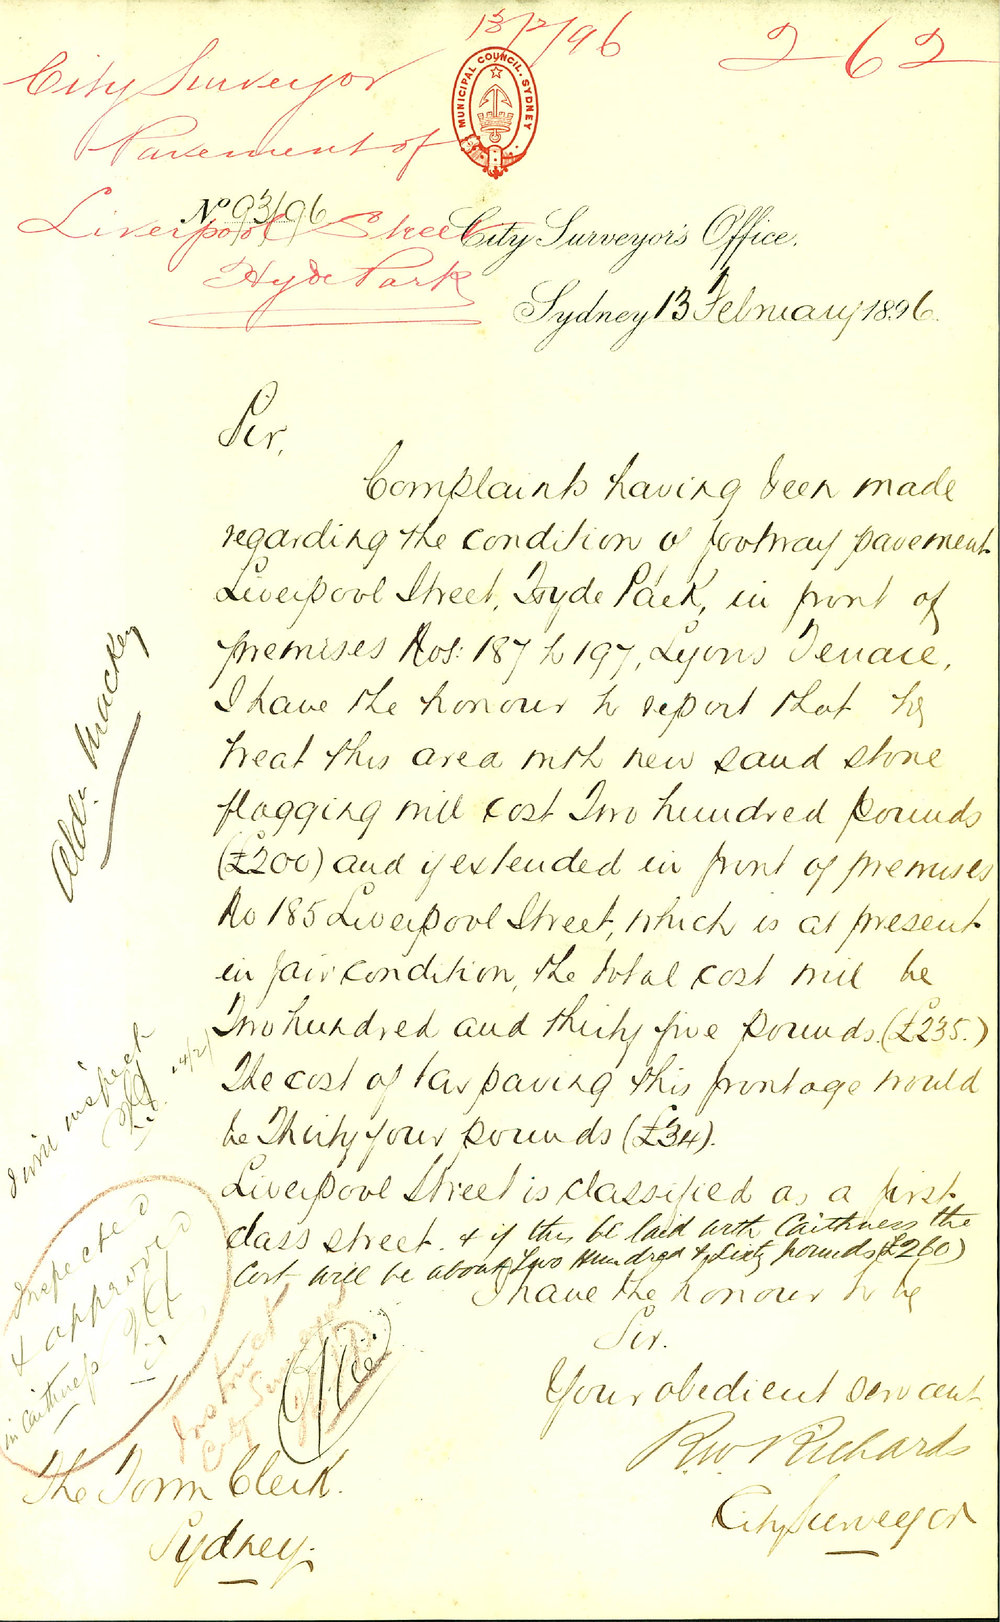 13/2/96
262
City Surveyor
Pavement of
Liverpool Street
Hyde Park
MUNICIPAL COUNCIL. SYDNEY
No 93/96
City Surveyor's Office.
Sydney 13 February 1896.
Sir,
Complaints having been made
regarding the condition of footway pavement
Liverpool Street, Hyde Park, in front of
premises Nos: 187 to 197, Lyons Terrace,
I have the honour to report that to
treat this area with new sand stone
flagging will cost Two hundred pounds
(£200) and if extended in front of premises
No 185 Liverpool Street, which is at present
in fair condition, the total cost will be
Two hundred and thirty five pounds. (£235.)
The cost of tar paving this frontage would
be Thirty four pounds (£34).
Liverpool Street is classified as a first
class street. & if this be laid with Caithness the
Cost will be about Two Hundred & Sixty pounds (£260)
I have the honour to be
Sir.
Your obedient servant
R.W. Richards
City Surveyor
The Town Clerk.
Sydney.
Ald. Mackey
I will inspect
14/2/
Inspected
& approved
in Caithness
Instruct
City Surveyor